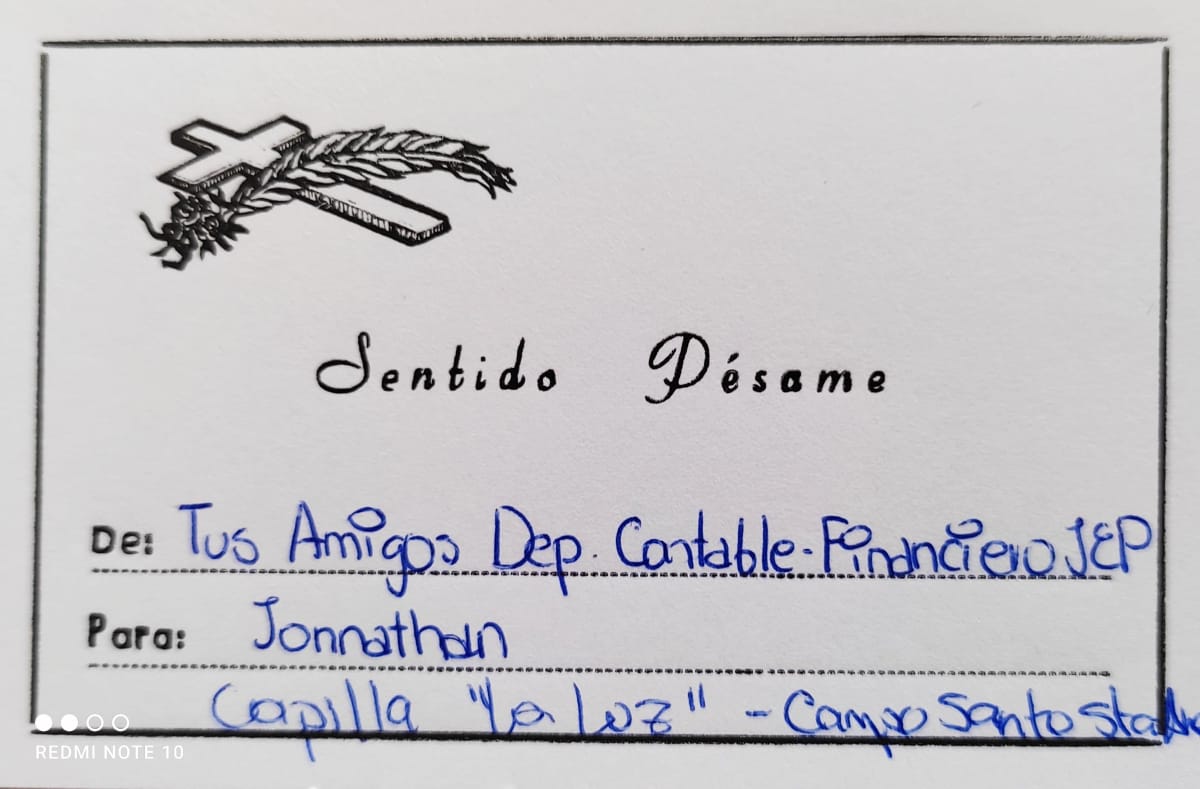 Sentido Pésame
De: Tus Amigos Dep. Contable-Financiero JEP
Para: Jonnathan
Capilla "La Luz" - Campo Santo
REDMI NOTE 10